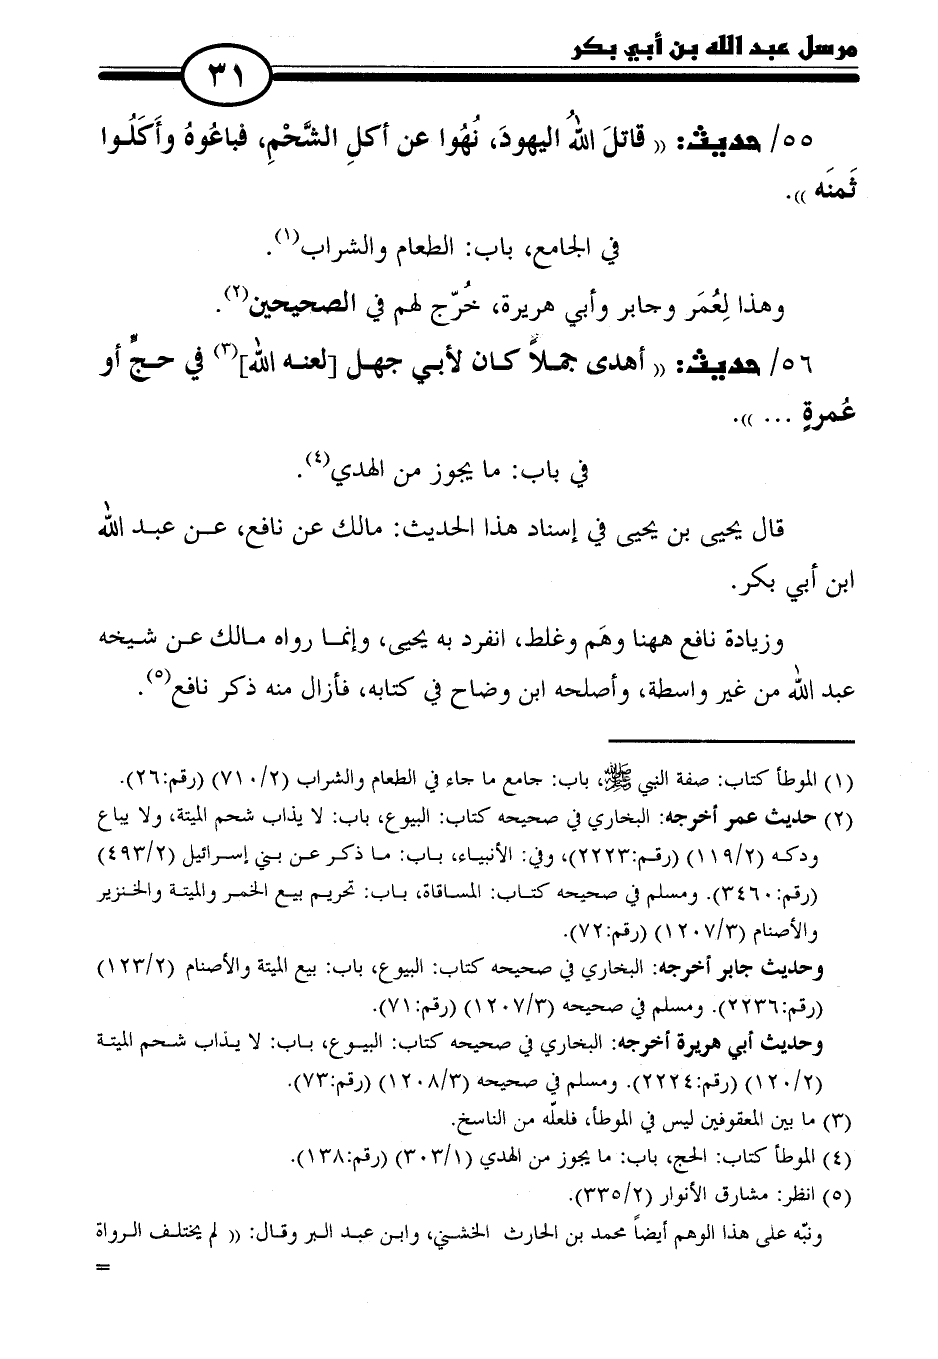 مرسل عبد الله بن أبي بكر
٣١
٥٥/ حديث: (( قاتلَ اللهُ اليهودَ، نُهُوا عن أكلِ الشَّحْمِ، فباعُوهُ وأَكَلُوا
ثَمنَه )).
في الجامع، باب: الطعام والشراب(١).
وهذا لِعُمَر وجابر وأبي هريرة، خُرّج لهم في الصحيحين(٢).
٥٦/ حديث: (( أهدى جملاً كان لأبي جهل [لعنه الله](٣) في حجٍّ أو
عُمرةٍ ... )).
في باب: ما يجوز من الهدي(٤).
قال يحيى بن يحيى في إسناد هذا الحديث: مالك عن نافع، عن عبد الله
ابن أبي بكر.
وزيادة نافع ههنا وهَم وغلط، انفرد به يحيى، وإنما رواه مالك عن شيخه
عبد الله من غير واسطة، وأصلحه ابن وضاح في كتابه، فأزال منه ذكر نافع(٥).
(١) الموطأ كتاب: صفة النبي ﷺ، باب: جامع ما جاء في الطعام والشراب (٧١٠/٢) (رقم:٢٦).
(٢) حديث عمر أخرجه: البخاري في صحيحه كتاب: البيوع، باب: لا يذاب شحم الميتة، ولا يباع
ودكه (١١٩/٢) (رقم:٢٢٢٣)، وفي: الأنبياء، باب: ما ذكر عن بني إسرائيل (٤٩٣/٢)
(رقم:٣٤٦٠). ومسلم في صحيحه كتاب: المساقاة، باب: تحريم بيع الخمر والميتة والخنزير
والأصنام (١٢٠٧/٣) (رقم:٧٢).
وحديث جابر أخرجه: البخاري في صحيحه كتاب: البيوع، باب: بيع الميتة والأصنام (١٢٣/٢)
(رقم:٢٢٣٦). ومسلم في صحيحه (١٢٠٧/٣) (رقم:٧١).
وحديث أبي هريرة أخرجه: البخاري في صحيحه كتاب: البيوع، باب: لا يذاب شحم الميتة
(١٢٠/٢) (رقم:٢٢٢٤). ومسلم في صحيحه (١٢٠٨/٣) (رقم:٧٣).
(٣) ما بين المعقوفين ليس في الموطأ، فلعلّه من الناسخ.
(٤) الموطأ كتاب: الحج، باب: ما يجوز من الهدي (٣٠٣/١) (رقم:١٣٨).
(٥) انظر: مشارق الأنوار (٣٣٥/٢).
ونبّه على هذا الوهم أيضاً محمد بن الحارث الخشني، وابن عبد البر وقال: (( لم يختلف الرواة
=